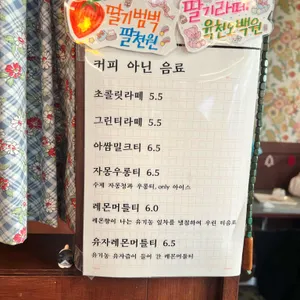 딸기범벅
팔천원
딸기라떼
육천오백원
커피 아닌 음료
초콜릿라떼 5.5
그린티라떼 5.5
아쌈밀크티 6.5
자몽우롱티 6.5
수제 자몽청과 우롱티, only 아이스
레몬머틀티 6.0
레몬향이 나는 유기농 잎차를 냉침하여 우린 허브티
유자레몬머틀티 6.5
유기농 유자즙이 들어 간 레몬머틀티